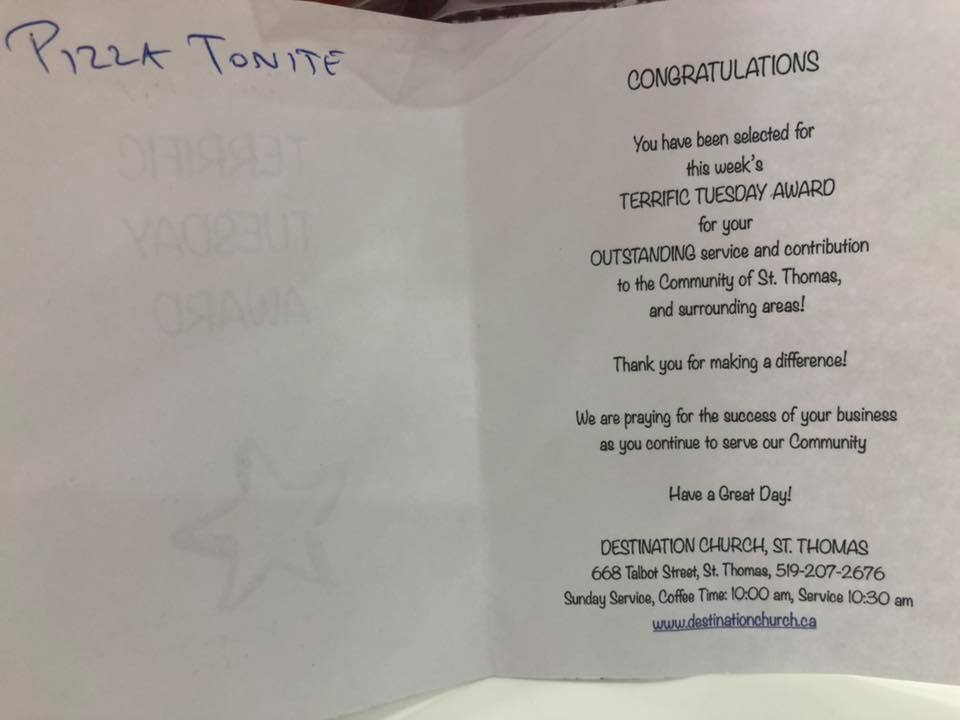 PIZZA TONITE
TERRIFIC
TUESDAY
AWARD
CONGRATULATIONS
You have been selected for
this week's
TERRIFIC TUESDAY AWARD
for your
OUTSTANDING service and contribution
to the Community of St. Thomas,
and surrounding areas!
Thank you for making a difference!
We are praying for the success of your business
as you continue to serve our Community
Have a Great Day!
DESTINATION CHURCH, ST. THOMAS
668 Talbot Street, St. Thomas, 519-207-2676
Sunday Service, Coffee Time: 10:00 am, Service 10:30 am
www.destinationchurch.ca